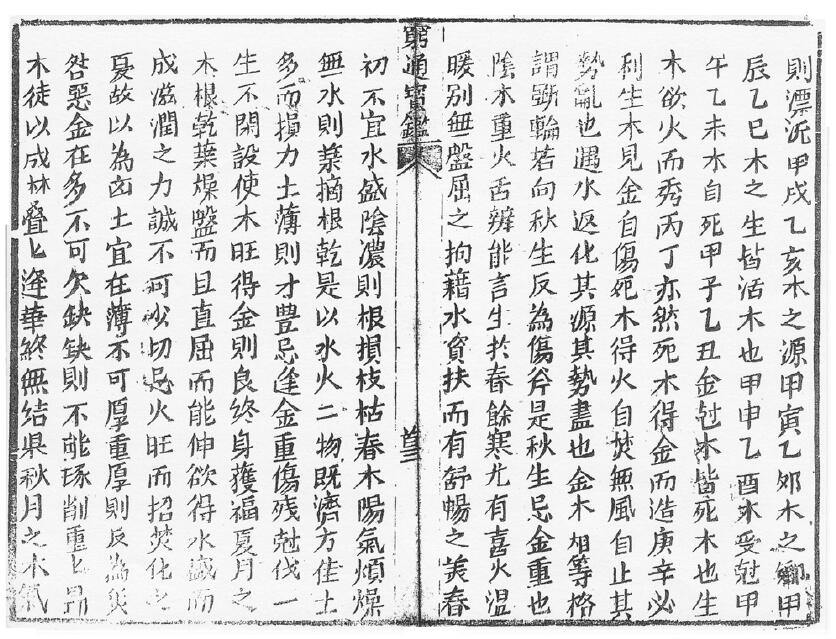 則漂沉甲戌乙亥木之源甲寅乙卯木之鄉甲
辰乙巳木之生皆活木也甲申乙酉木受尅甲
午乙未木自死甲子乙丑金尅木皆死木也生
木欲火而秀丙丁亦然死木得金而造庚辛必
利生木見金自傷死木得火自焚無風自止其
勢亂也遇水返化其源其勢盡也金木相等格
謂斵輪若向秋生反為傷斧是秋生忌金重也
陰木重火舌辨能言生於春餘寒尤有喜火溫
暖別無盤屈之拘藉水資扶而有舒暢之美春
窮通寶鑑
初不宜水盛陰濃則根損枝枯春木陽氣煩燥
無水則葉摘根乾是以水火二物既濟方佳土
多而損力土薄則才豊忌逢金重傷殘尅伐一
生不閑設使木旺得金則良終身獲福夏月之
木根乾葉燥盤而且直屈而能伸欲得水盛而
成滋潤之力誠不可少切忌火旺而招焚化之
憂故以為凶土宜在薄不可厚重厚則反為災
咎惡金在多不可欠缺缺則不能琢削重匕見
木徒以成林疊匕逢華終無結果秋月之木氣